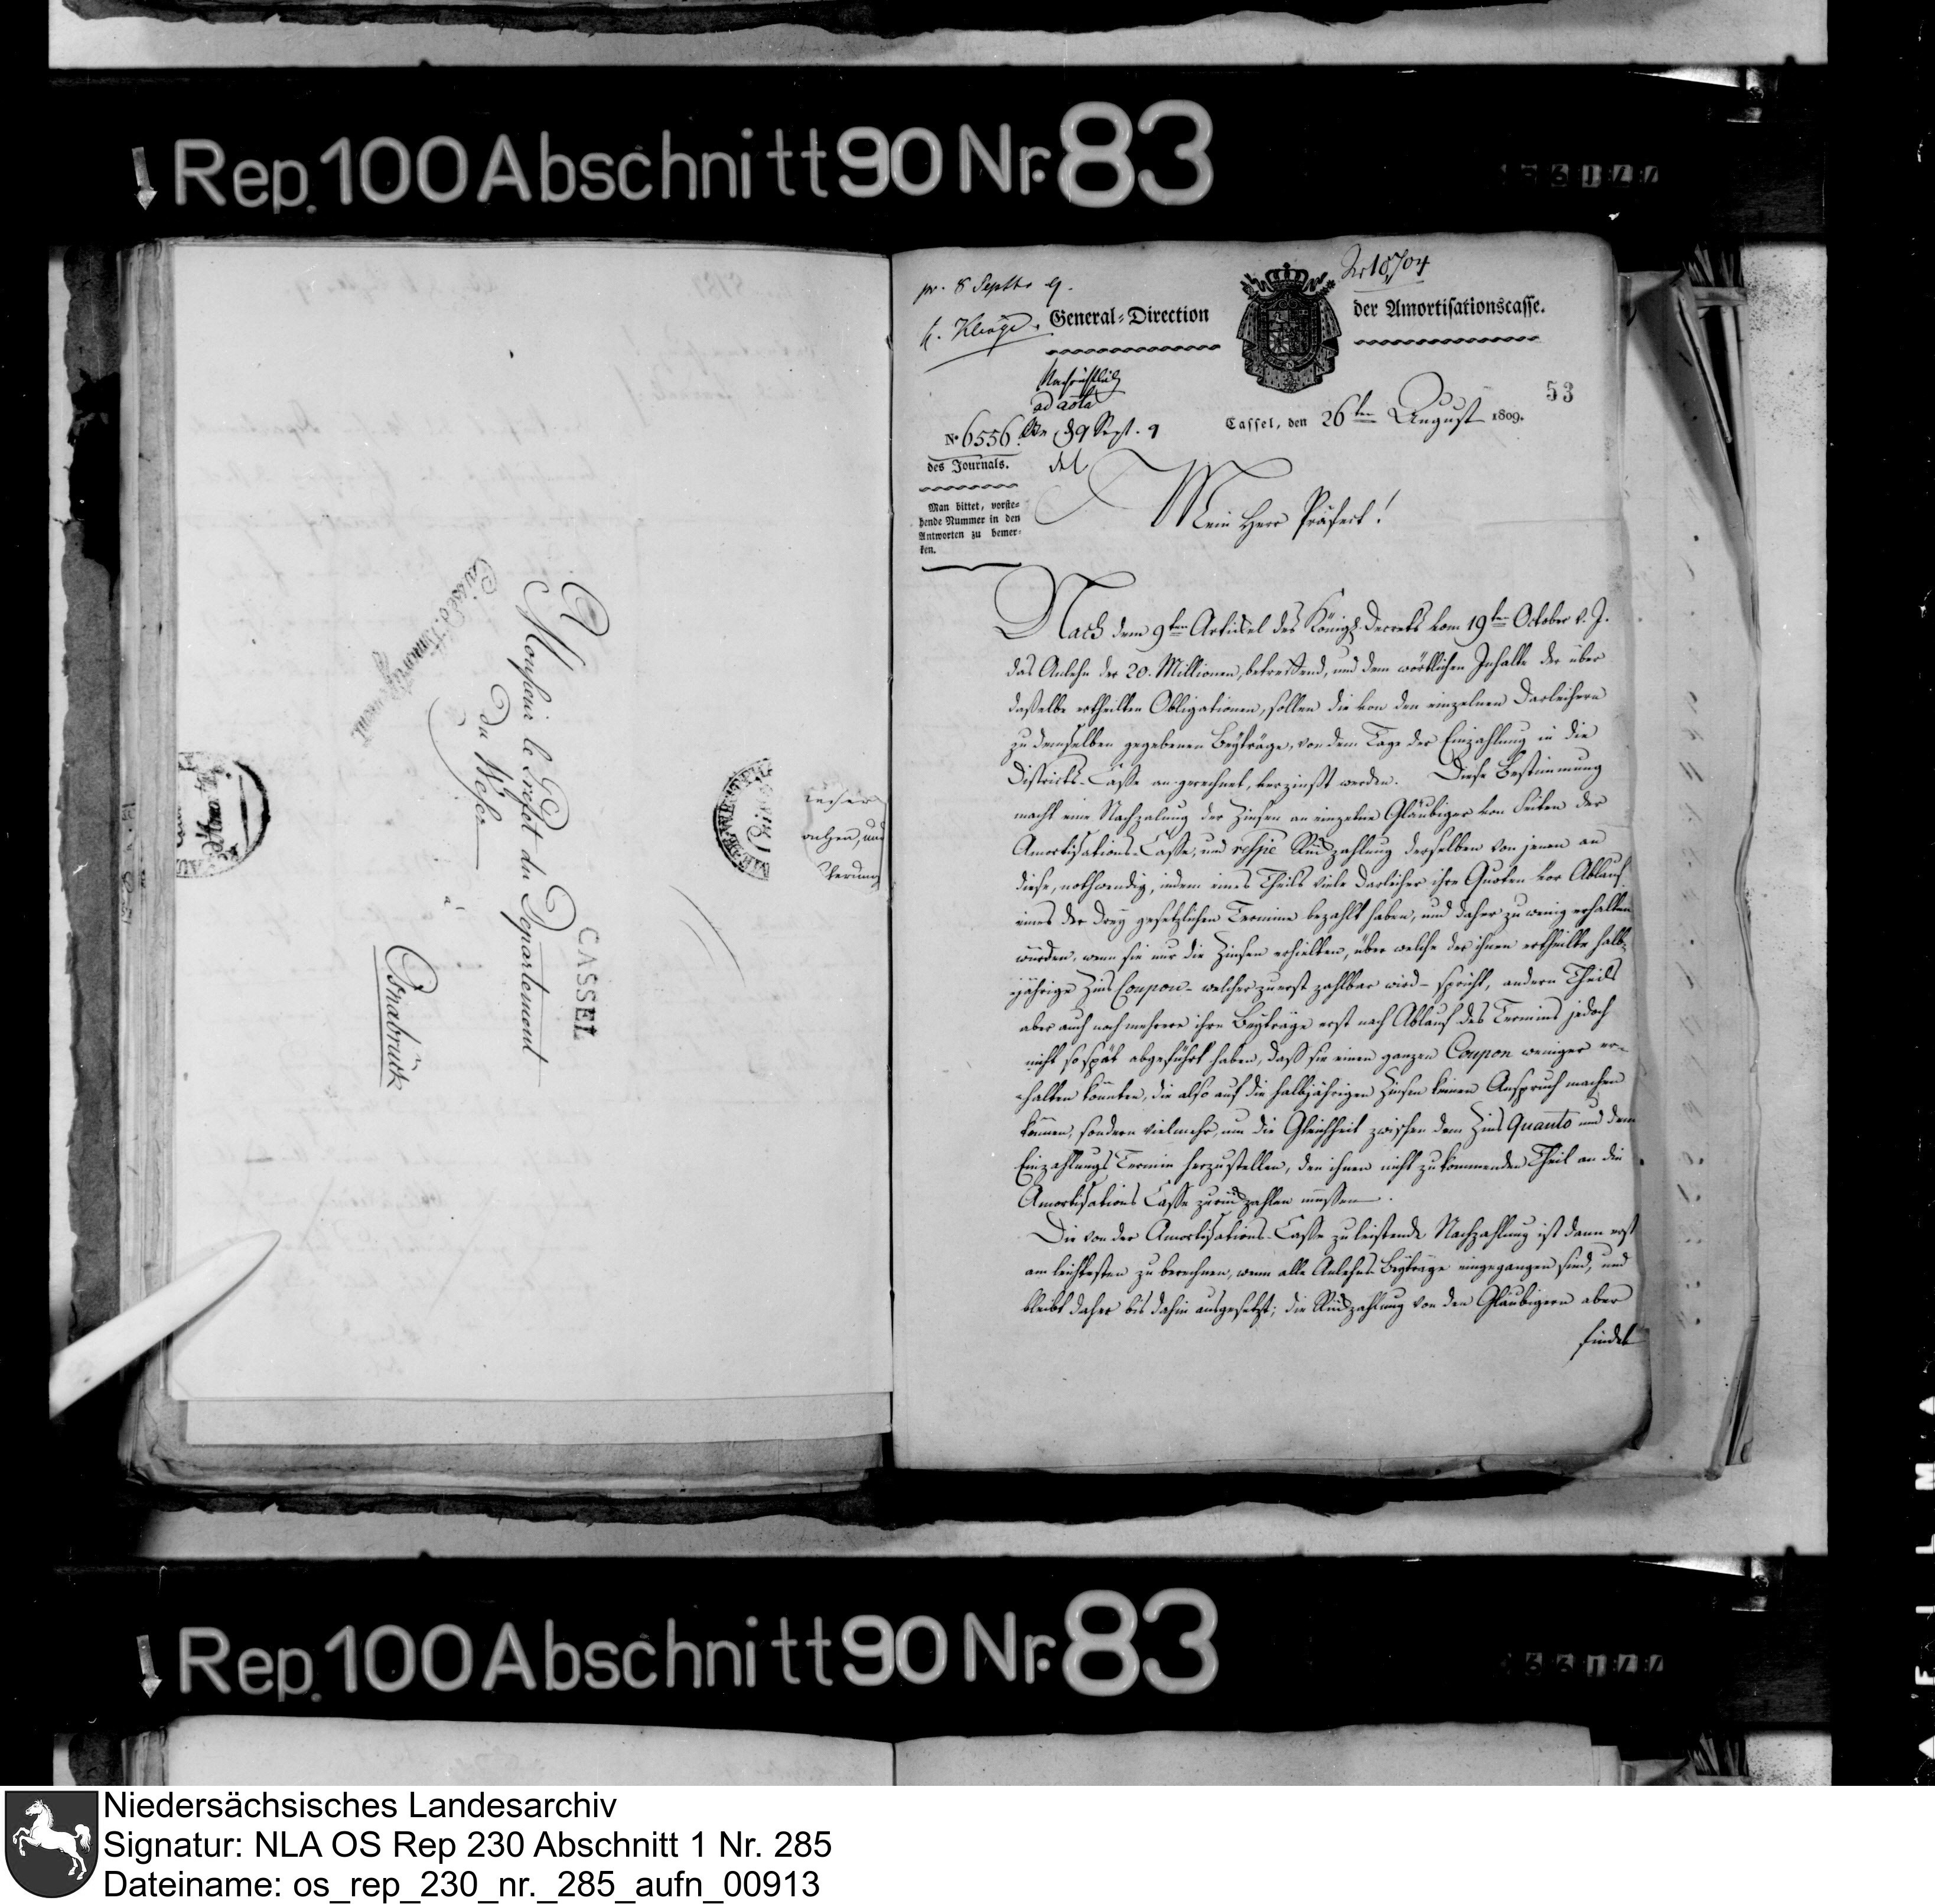 Rep. 100 Abschnitt 90 Nr. 83
A Monsieur le Préfet du Departement
du Weser
à
Osnabrück
CASSEL
pr. 8 Septbr 9.
Nr 18704
General-Direction
der Amortisationscasse.
ad acta
53
No 6556
9 Sept. 9
Cassel, den 26ten August 1809.
des Journals.
Man bittet, vorste-
hende Nummer in den
Antworten zu bemer-
ken.
Mein Herr Präfect!
Nach dem 9ten Artickel des Königl. Decrets vom 19ten October v. J.
das Anlehn der 20. Millionen, betreffend, und dem wörtlichen Inhalte der über
daßelbe ertheilten Obligationen, sollen die von den einzelnen Darleihern
zu demselben gegebenen Beyträge, von dem Tage der Einzahlung in die
Districts-Casse an gerechnet, verzinßt werden. Diese Bestimmung
macht eine Nachzalung der Zinsen an einzelne Gläubiger von Seiten der
Amortisations-Casse, und respve Rückzahlung derselben von jenen an
diese, nothwendig, indem eines Theils viele Darleiher ihre Quoten vor Ablauf
eines der drey gesetzlichen Termine bezahlt haben, und daher zu wenig erhalten
würden, wenn sie nur die Zinsen erhielten, über welche der ihnen ertheilte halb-
jährige Zins Coupon - welcher zuerst zahlbar wird - spricht, andern Theils
aber auch noch mehrere ihre Beyträge erst nach Ablauf des Termins jedoch
nicht so spät abgeführt haben, daß sie einen ganzen Coupon weniger er-
halten könnten, die also auf die halbjährigen Zinsen keinen Anspruch machen
können, sondern vielmehr, um die Gleichheit zwischen dem Zins Quanto und dem
Einzahlungs Termin herzustellen, den ihnen nicht zukommenden Theil an die
Amortisations Casse zurückzahlen müssen.
Die von der Amortisations-Casse zu leistende Nachzahlung ist dann erst
am leichtesten zu berechnen, wenn alle Anlehns Beyträge eingegangen sind, und
bleibt daher bis dahin ausgesetzt; die Rückzahlung von den Gläubigern aber
findet
Rep. 100 Abschnitt 90 Nr. 83
Niedersächsisches Landesarchiv
Signatur: NLA OS Rep 230 Abschnitt 1 Nr. 285
Dateiname: os_rep_230_nr._285_aufn_00913